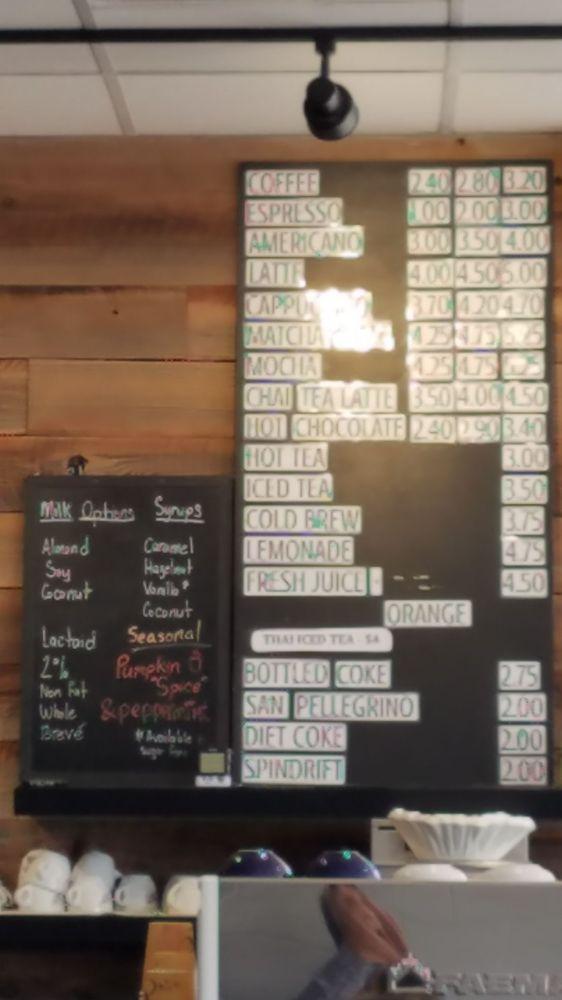 COFFEE 2.40 2.80 3.20
ESPRESSO 1.00 2.00 3.00
AMERICANO 3.00 3.50 4.00
LATTE 4.00 4.50 5.00
3.70 4.20 4.70
MATCHA 4.25 4.75
MOCHA 4.25 4.75
CHAI TEA LATTE 3.50 4.00 4.50
HOT CHOCOLATE 2.40 2.90 3.40
HOT TEA 3.00
ICED TEA 3.50
COLD BREW 3.75
LEMONADE 4.75
FRESH JUICE - 4.50
ORANGE
THAI ICED TEA - $4
BOTTLED COKE 2.75
SAN PELLEGRINO 2.00
DIET COKE 2.00
SPINDRIFT 2.00
Milk Options
Almond
Soy
Coconut
Lactaid
2%
Non Fat
Whole
Brevé
Syrups
Caramel
Hazelnut
Vanilla*
Coconut
Seasonal
Pumpkin
"Spice"
& peppermint
*Available
Sugar Free